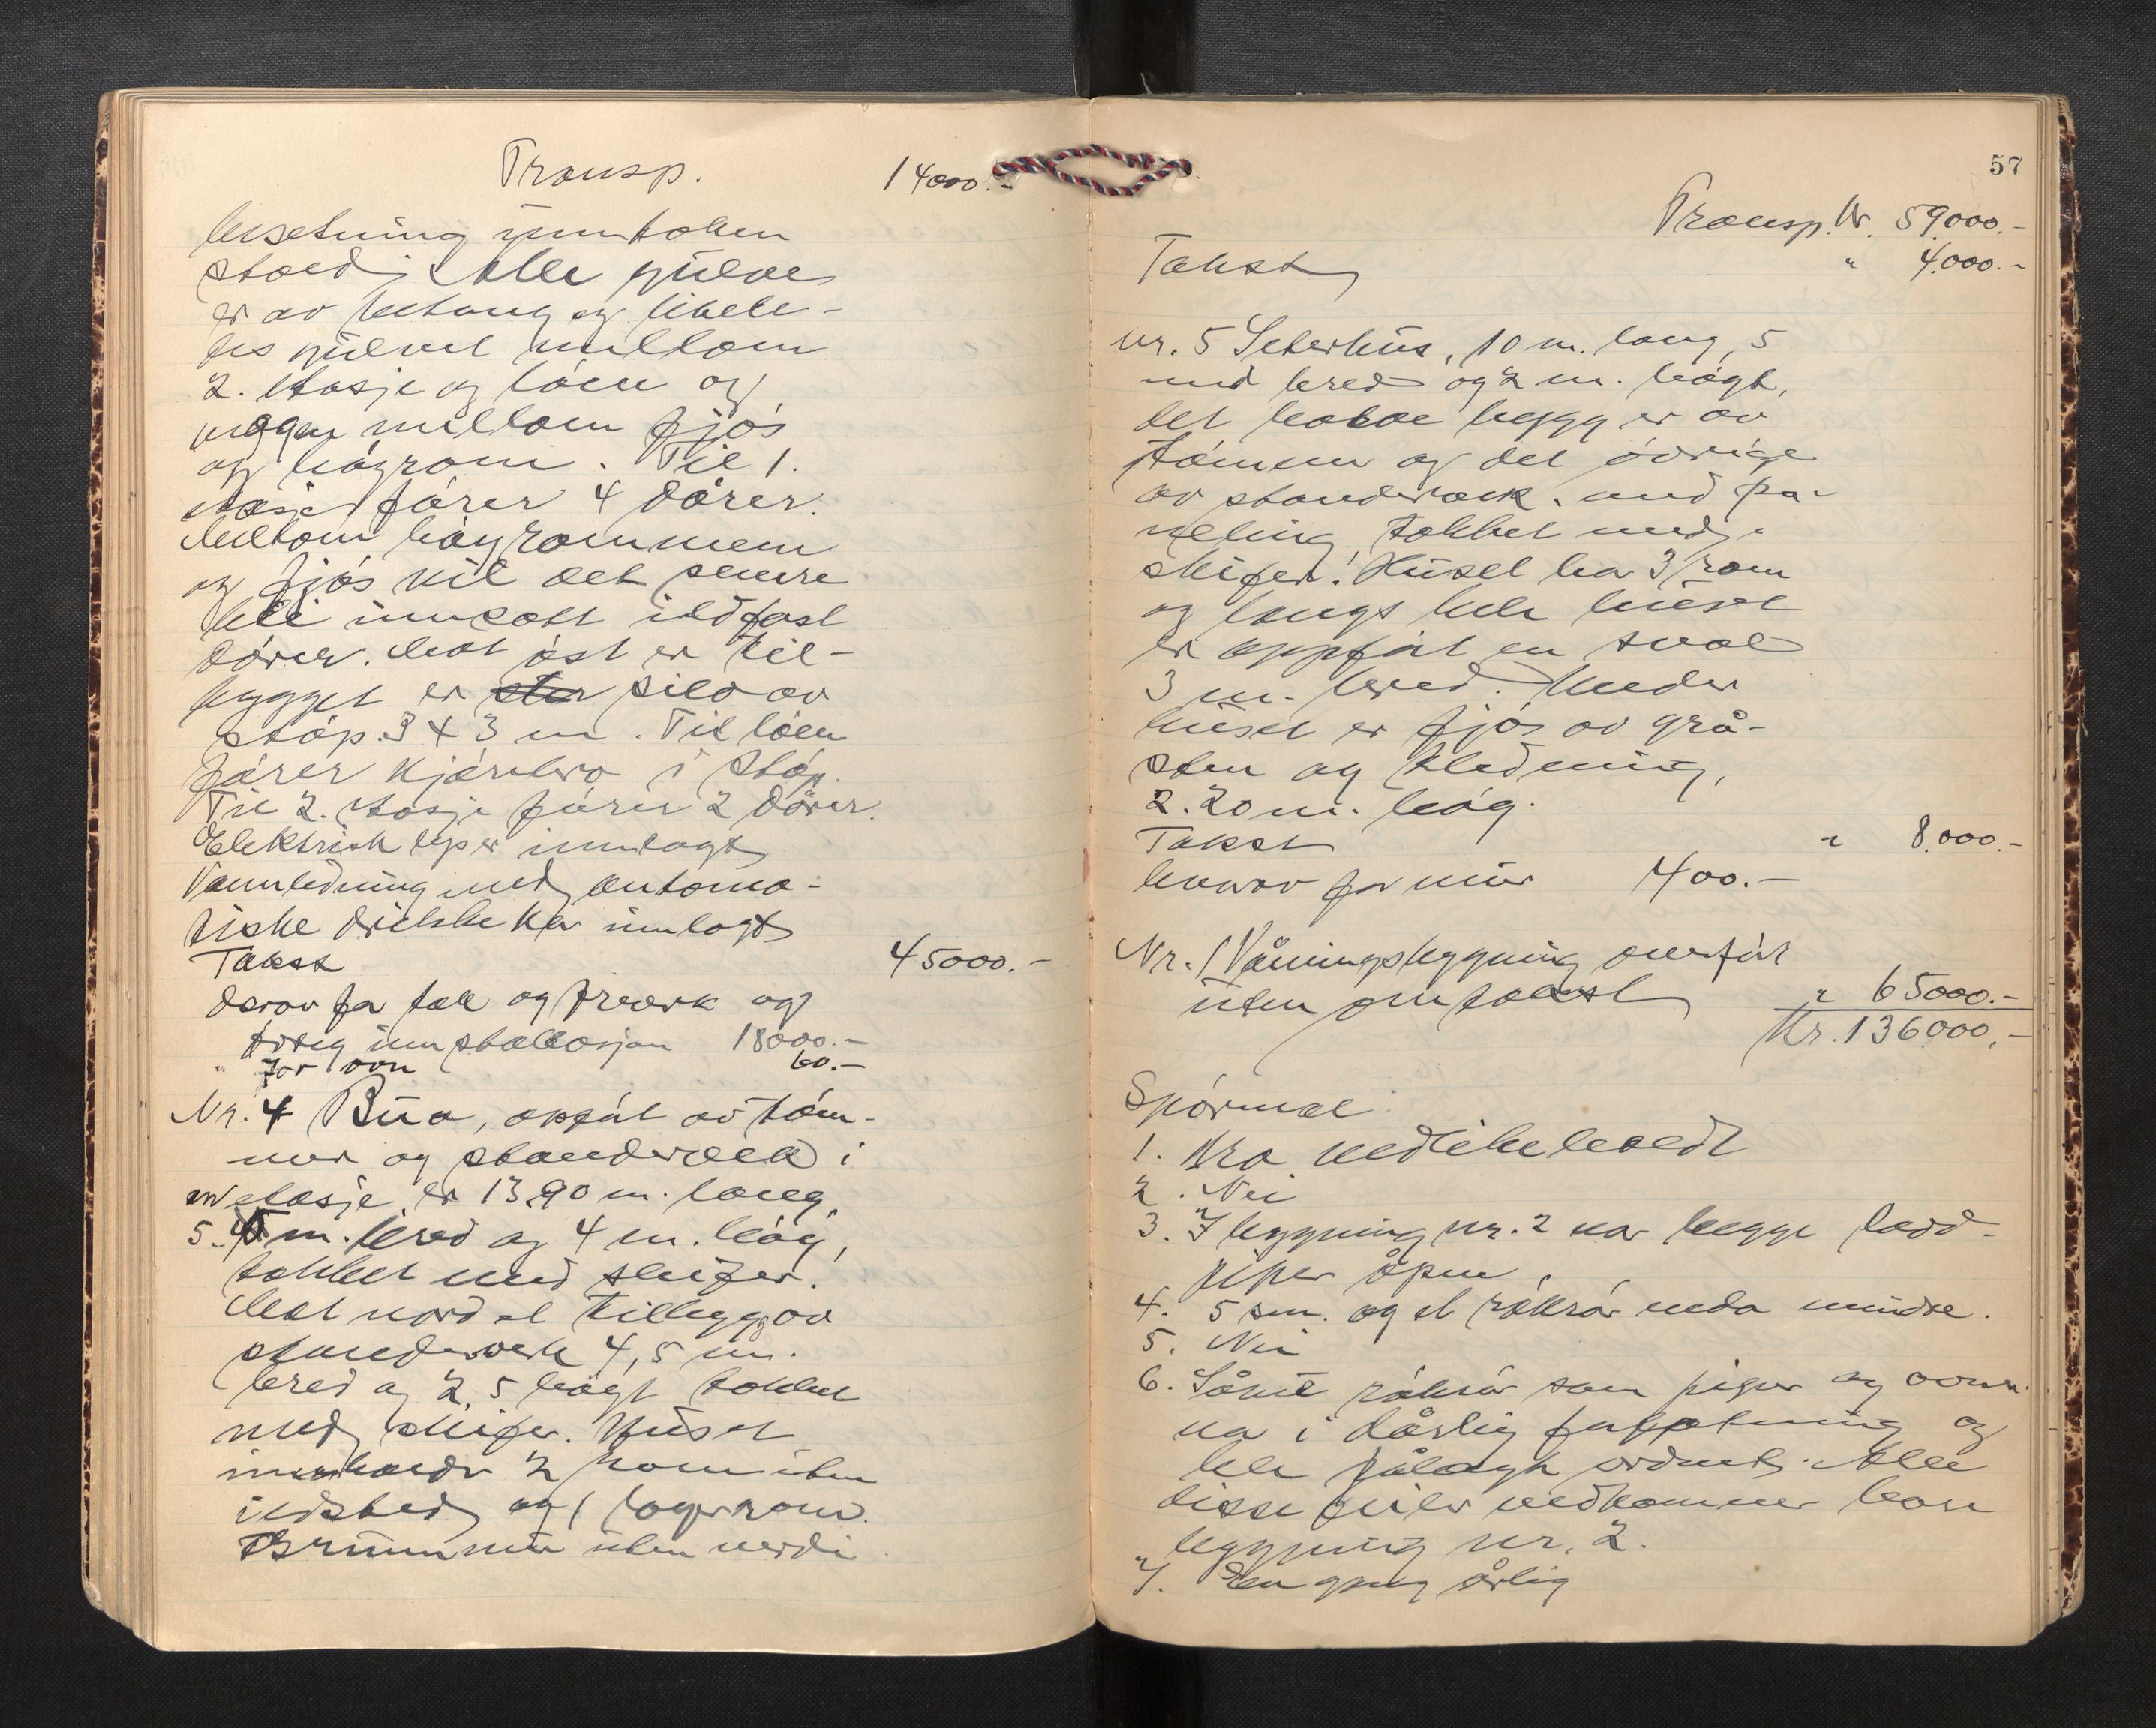 Transp. 14000.-
innsetning unntaken
stald. Alle gülve
er av betong og likele-
des gülvet mellom
2. etasje og löen og
veggen mellom fjös
og höyrom. Til 1.
etasje förer 4 dörer.
Mellom höyrommem
og fjös vil det senere
bli innsatt ildfast
dörer. Mot öst er til-
bygget er silo av
stöp. 3 x 3 m. Til löen
förer kjörebro i stöp.
Til 2. etasje förer 2 dörer.
Elektrisk lys er innlagt
Vannledning med automa-
tiske drikkekar innlagt
Takst 45000.-
derav for tak og treverk og
övrig innstallasjon 18000.-
" for ovn 60.-
Nr. 4 Büa, opfört av töm-
mer og standerverk i
en etasje er 13,90 m. lang,
5. m. bred og 4 m. höy,
tekket med skifer.
Mot nord et tilbygg av
standerverk 4,5 m.
bred og 2,5 högt tekket
med skifer. Hüset
inneholder 2 rom uten
ildsted og 1 lagerrom.
Grünnmür uten verdi
57
Transp. Kr. 59.000.-
Takst " 4.000.-
nr. 5 Seterhüs, 10 m. lang, 5
med bred og 2 m. högt,
det halve bygg er av
tömmer og det övrige
av standerverk. med pa-
neling, tekket med
skifer. Hüset har 3 rom
og langs hele hüset
er oppfört en sval
3 m. bred. Under
hüset er fjös av grå-
sten og kledning,
2.20 m. hög.
Takst " 8.000.-
herav for mür 400.-
Nr. 1 Våningsbygning overfört
üten omtakst " 65000.-
Kr. 136.000.-
Spörsmål
1. Bra vedlikeholdt
2. Nei
3. I bygning nr. 2 var begge ladd-
piper åpne.
4. 5 sm. og et rökrör enda mindre.
5. Nei
6. Såvel rökrör som piper og ovner
var i dårlig forfatning og
ble pålagt ordnet. Alle
disse feiler vedkommer bare
bygning nr. 2.
7. En gang årlig